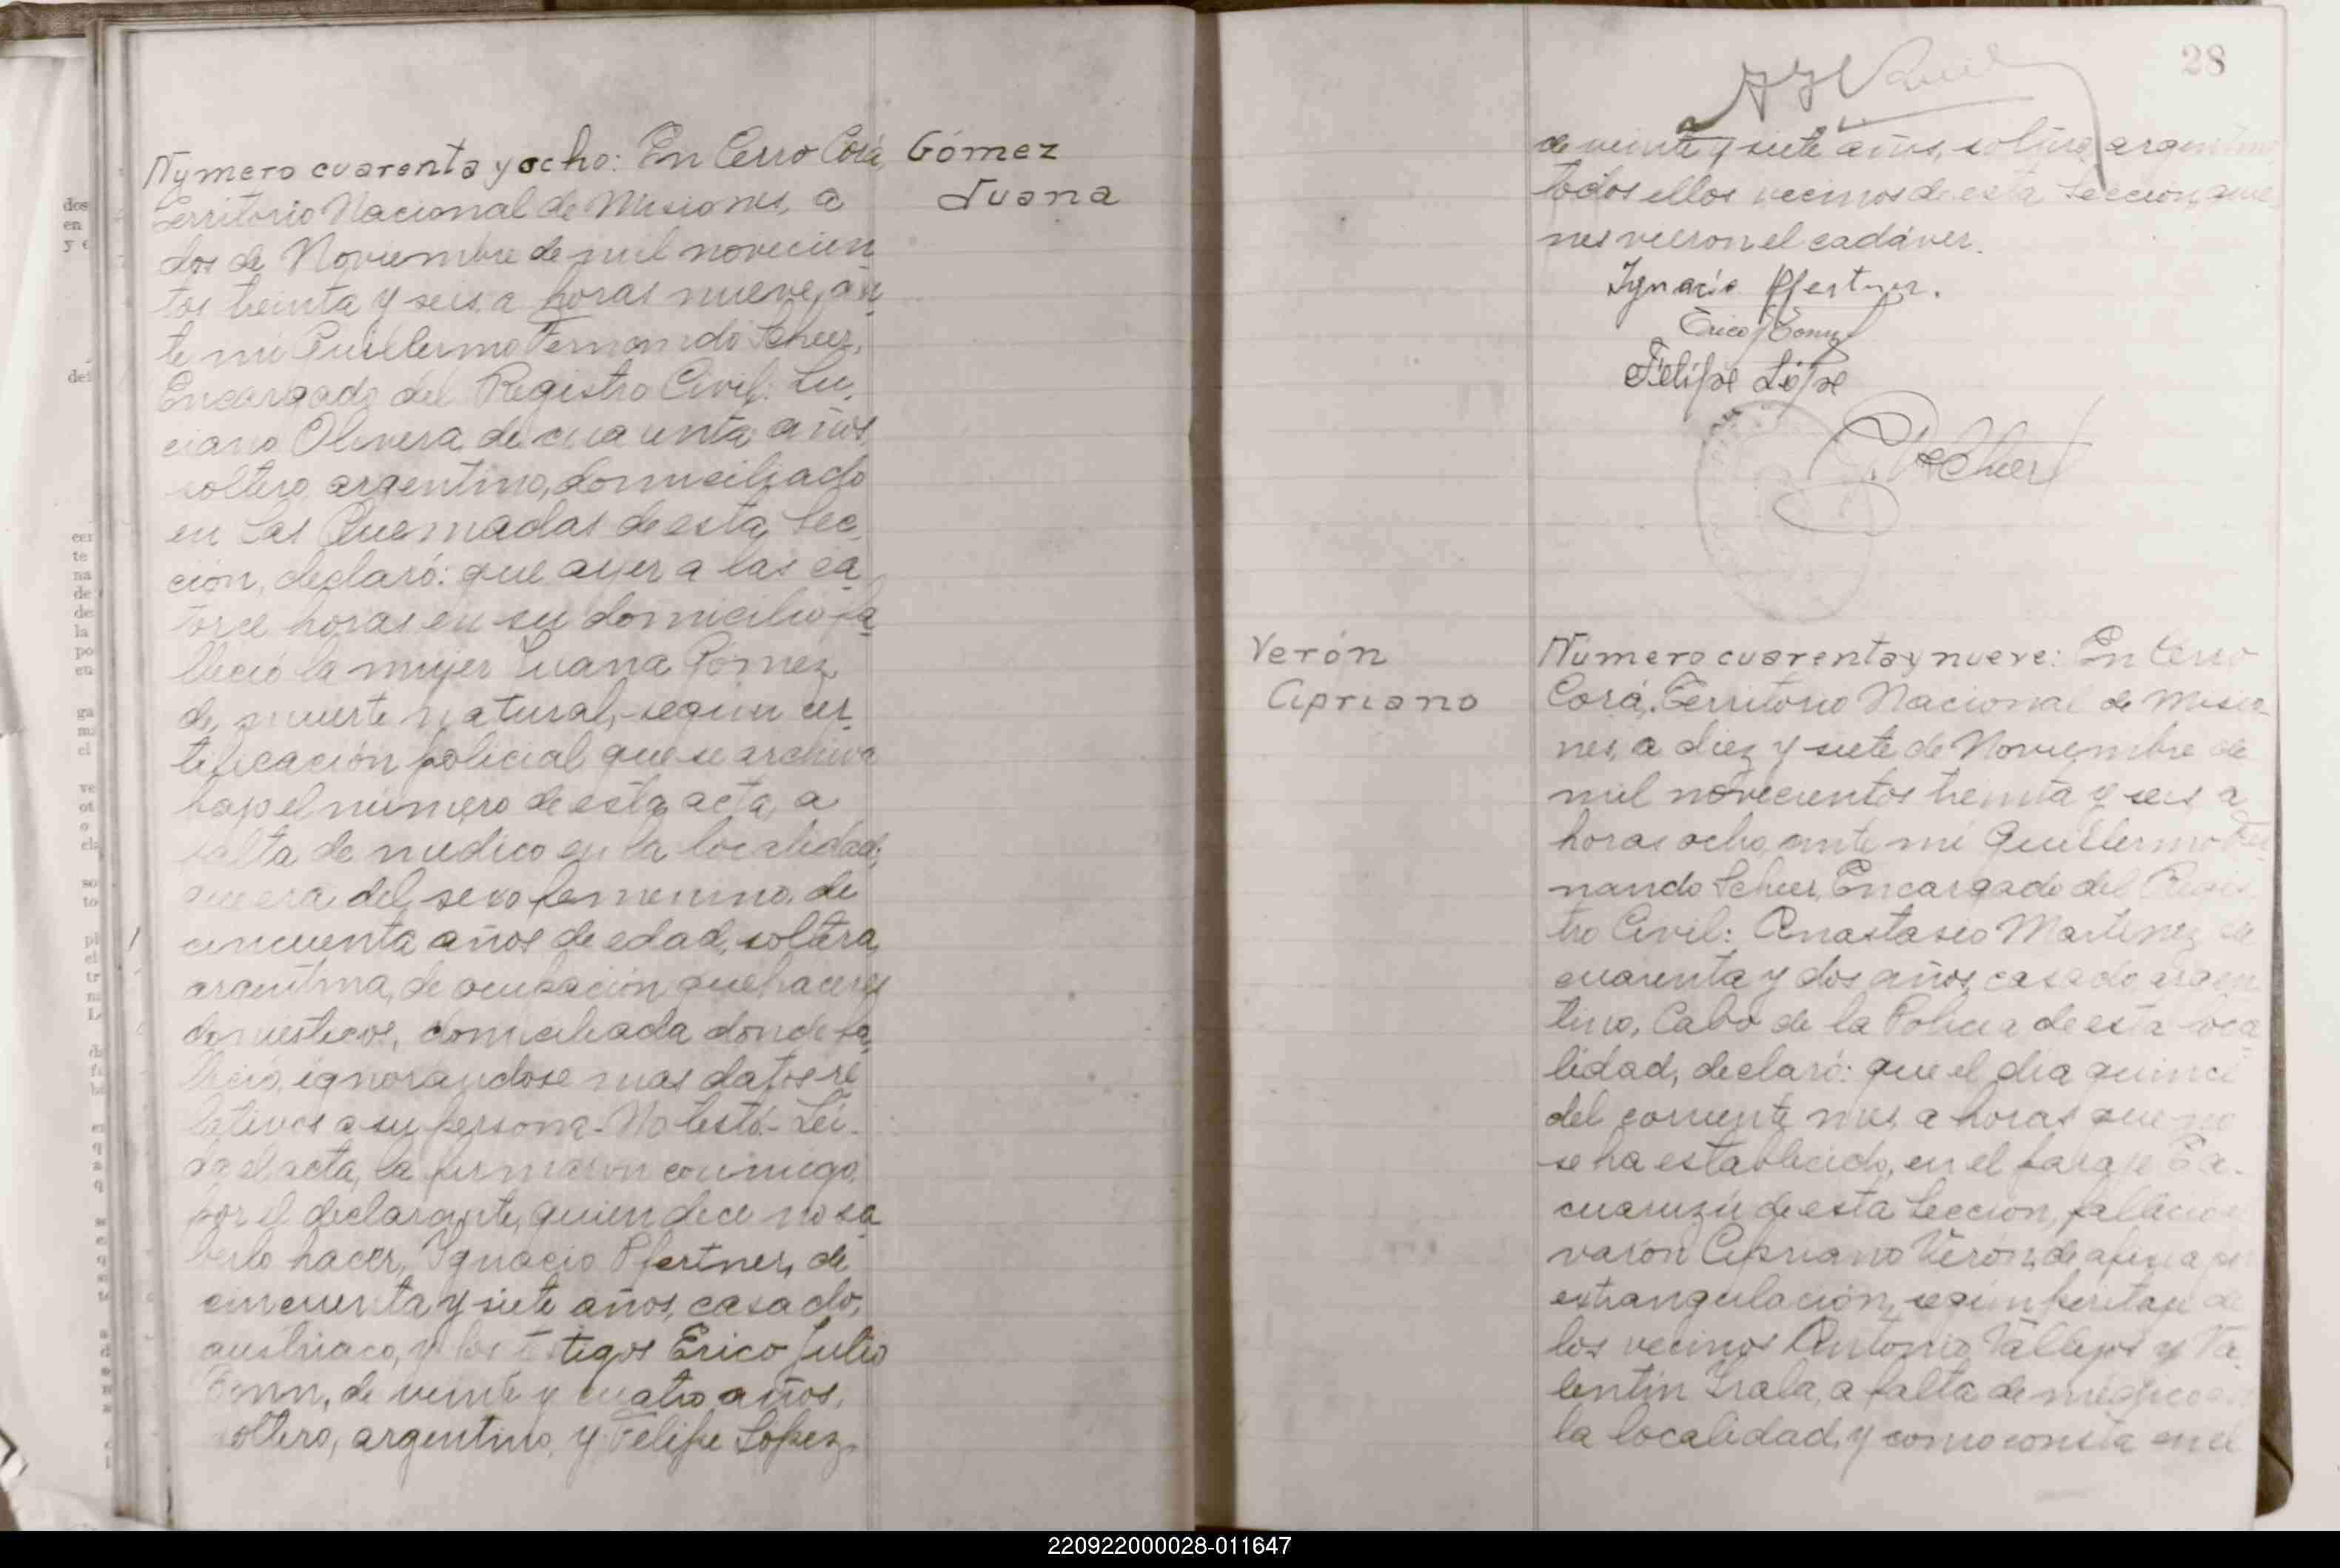 Número cuarenta y ocho: En Cerro Corá,
Territorio Nacional de Misiones, a
dos de Noviembre de mil novecien
tos treinta y seis, a horas nueve, an
te mi Guillermo Fernando Scheer,
Encargado del Registro Civil: Lu
ciano Olivera, de cuarenta años,
soltero, argentino, domiciliado
en Las Quemadas de esta Sec
ción, declaró: que ayer a las ca
torce horas en su domicilio fa
lleció la mujer Juana Gómez
de muerte natural, según cer
tificación policial que se archiva
bajo el número de esta acta, a
falta de medico en la localidad;
que era del sexo femenino, de
cincuenta años de edad, soltera,
argentina, de ocupación quehaceres
domésticos, domiciliada donde fa
lleció, ignorandose mas datos re
lativos a su persona. No testó. Leí
da el acta, la firmaron conmigo,
por el declarante, quien dice no sa
berlo hacer, Ignacio Pfertner, de
cincuenta y siete años, casado,
austriaco, y los testigos Erico Julio
de veinte y cuatro años,
soltero, argentino, y Felipe Lopez,
Gómez
Juana
28
de veinte y siete años, soltero, argentino
todos ellos vecinos de esta Sección, quie
nes vieron el cadáver.
Ignacio Pfertner.
Erico
Felipe Lópe
Scheer
Verón
Cipriano
Número cuarenta y nueve: En Cerro
Corá, Territorio Nacional de Misio
nes, a diez y siete de Noviembre de
mil novecientos treinta y seis, a
horas ocho, ante mi Guillermo Fer
nando Scheer, Encargado del Regis
tro Civil: Anastasio Martinez, de
cuarenta y dos años, casado, argen
tino, Cabo de la Policia de esta loca
lidad, declaró: que el dia quince
del corriente mes, a horas que no
se ha establecido, en el paraje
de esta Sección, falleció el
varón Cipriano Verón, de
extrangulación, según peritaje de
los vecinos Antonio Vallejos y Va
lentín Irala, a falta de médico en
la localidad, y como consta en el
220922000028-011647